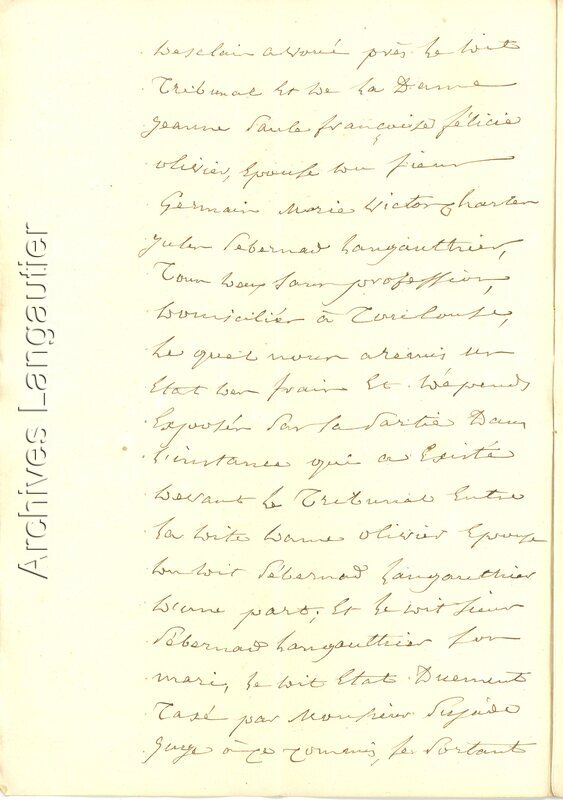 Desclain avoué près le dit
Tribunal et de la Dame
Jeanne Paule françoise félicie
olivier, Epouse du sieur
Germain Marie Victor Charles
Jules Pébernad Langauthier,
Tous deux sans profession,
Domiciliés à Toulouse,
Le quel nous a remis un
Etat des frais Et Dépends
Exposés Par la Partie Dans
L'instance qui a Existé
devant le Tribunal Entre
La dite dame olivier Epouse
du dit Pébernad Langauthier
d'une part; Et le dit sieur
Pébernad Langauthier son
mari, le dit Etat Duement
Taxé par Monsieur
Juge à ce commis, se Portant
Archives Langautier